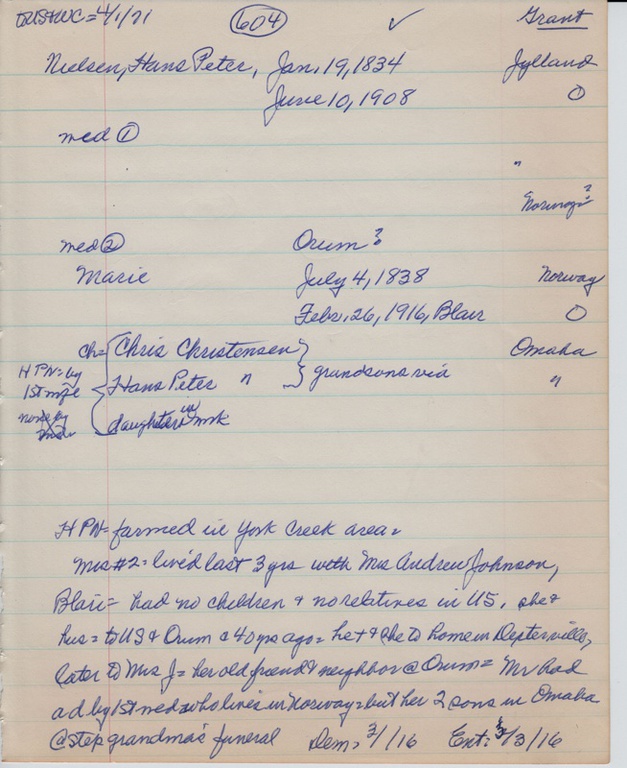 4/1/71 604 ✓ Grant
Nielsen, Hans Peter, Jan. 19, 1834 Jylland
June 10, 1908 O
med ①
"
Norway?
med ② Orum?
Marie July 4, 1838 Norway
Febr. 26, 1916, Blair O
ch= Chris Christensen Omaha
HPN= by Hans Peter " grandsons via "
1st mge
none by daughter in
HPN= farmed in York Creek area=
Mrs #2= lived last 3 yrs with Mrs Andrew Johnson,
Blair= had no children & no relatives in US, she &
hus= to US & Orum c 40 yrs ago= he & she to home in
later to Mrs J= her old friend & neighbor @ Orum= Mr had
a d by 1st med who lives in Norway= but her 2 sons in Omaha
@ step grandma's funeral Dem= 3/1/16 Ent: 3/3/16